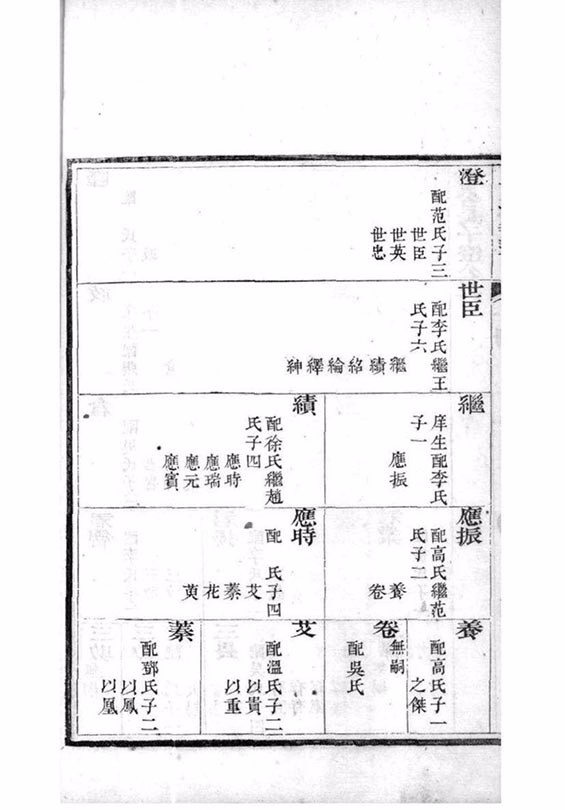 澄
配范氏子三
世臣
世英
世忠
世臣
配李氏繼王
氏子六
繼
績
紹
綸
繹
紳
繼
庠生配李氏
子一
應振
績
配徐氏繼趙
氏子四
應時
應瑞
應元
應賓
應振
配高氏繼范
氏子二
養
卷
應時
配　氏子四
艾
蓁
花
萸
養
配高氏子一
之傑
卷
無嗣
配吳氏
艾
配溫氏子二
以貴
以重
蓁
配鄧氏子二
以鳳
以凰